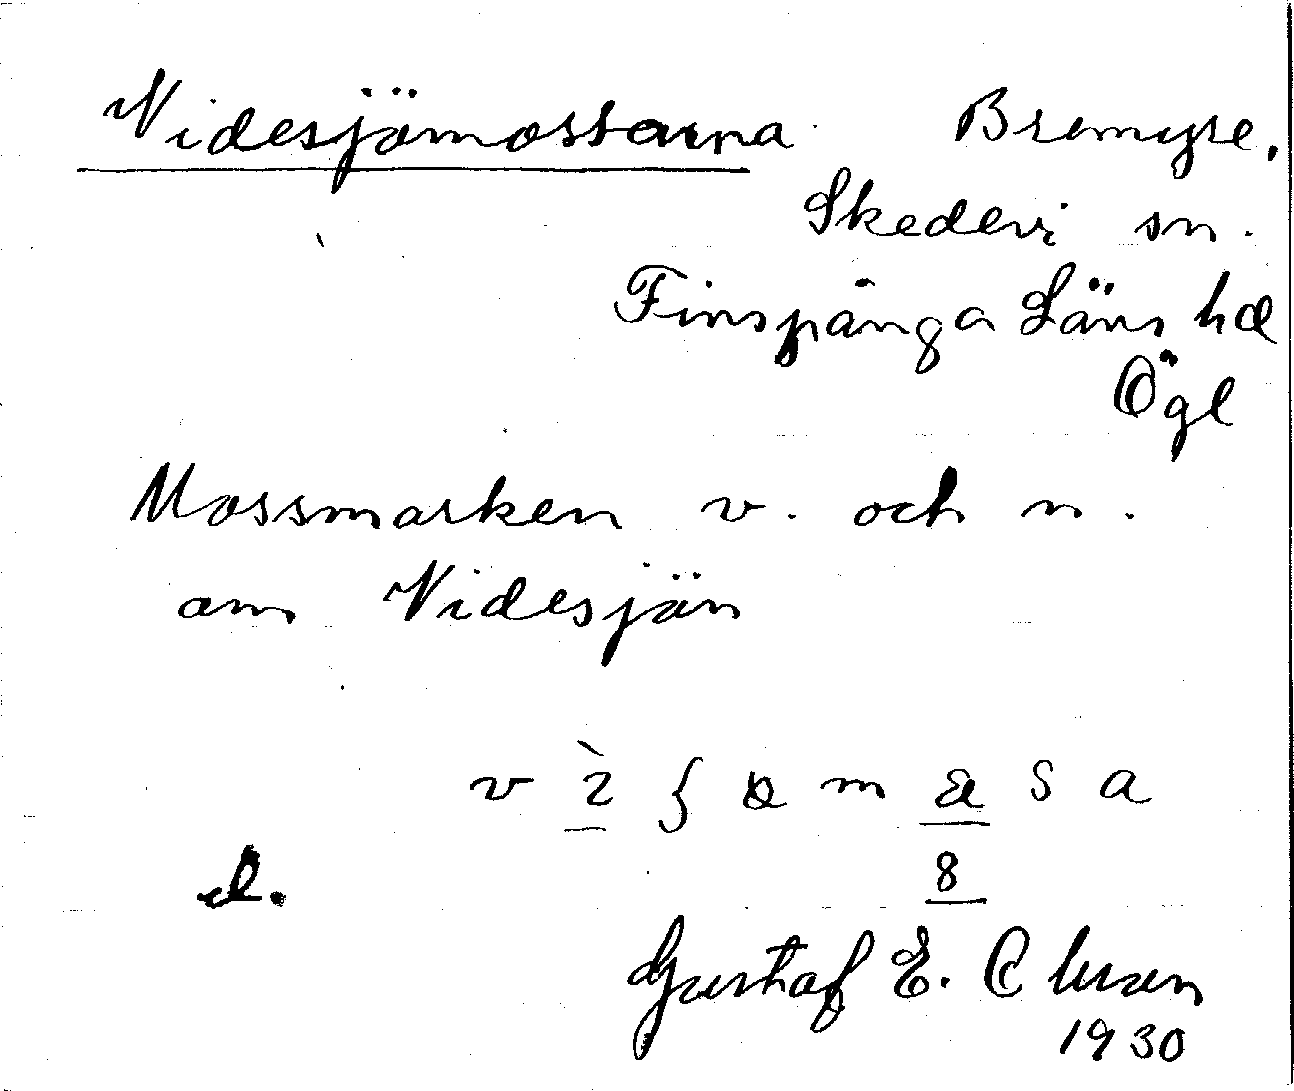 Videsjömossarna Bremyre,
Skedevi sn.
Finspånga Läns hd
Ögl
Mossmarken v. och n.
om Videsjön
d.
8
Gustaf E. Olsson
1930